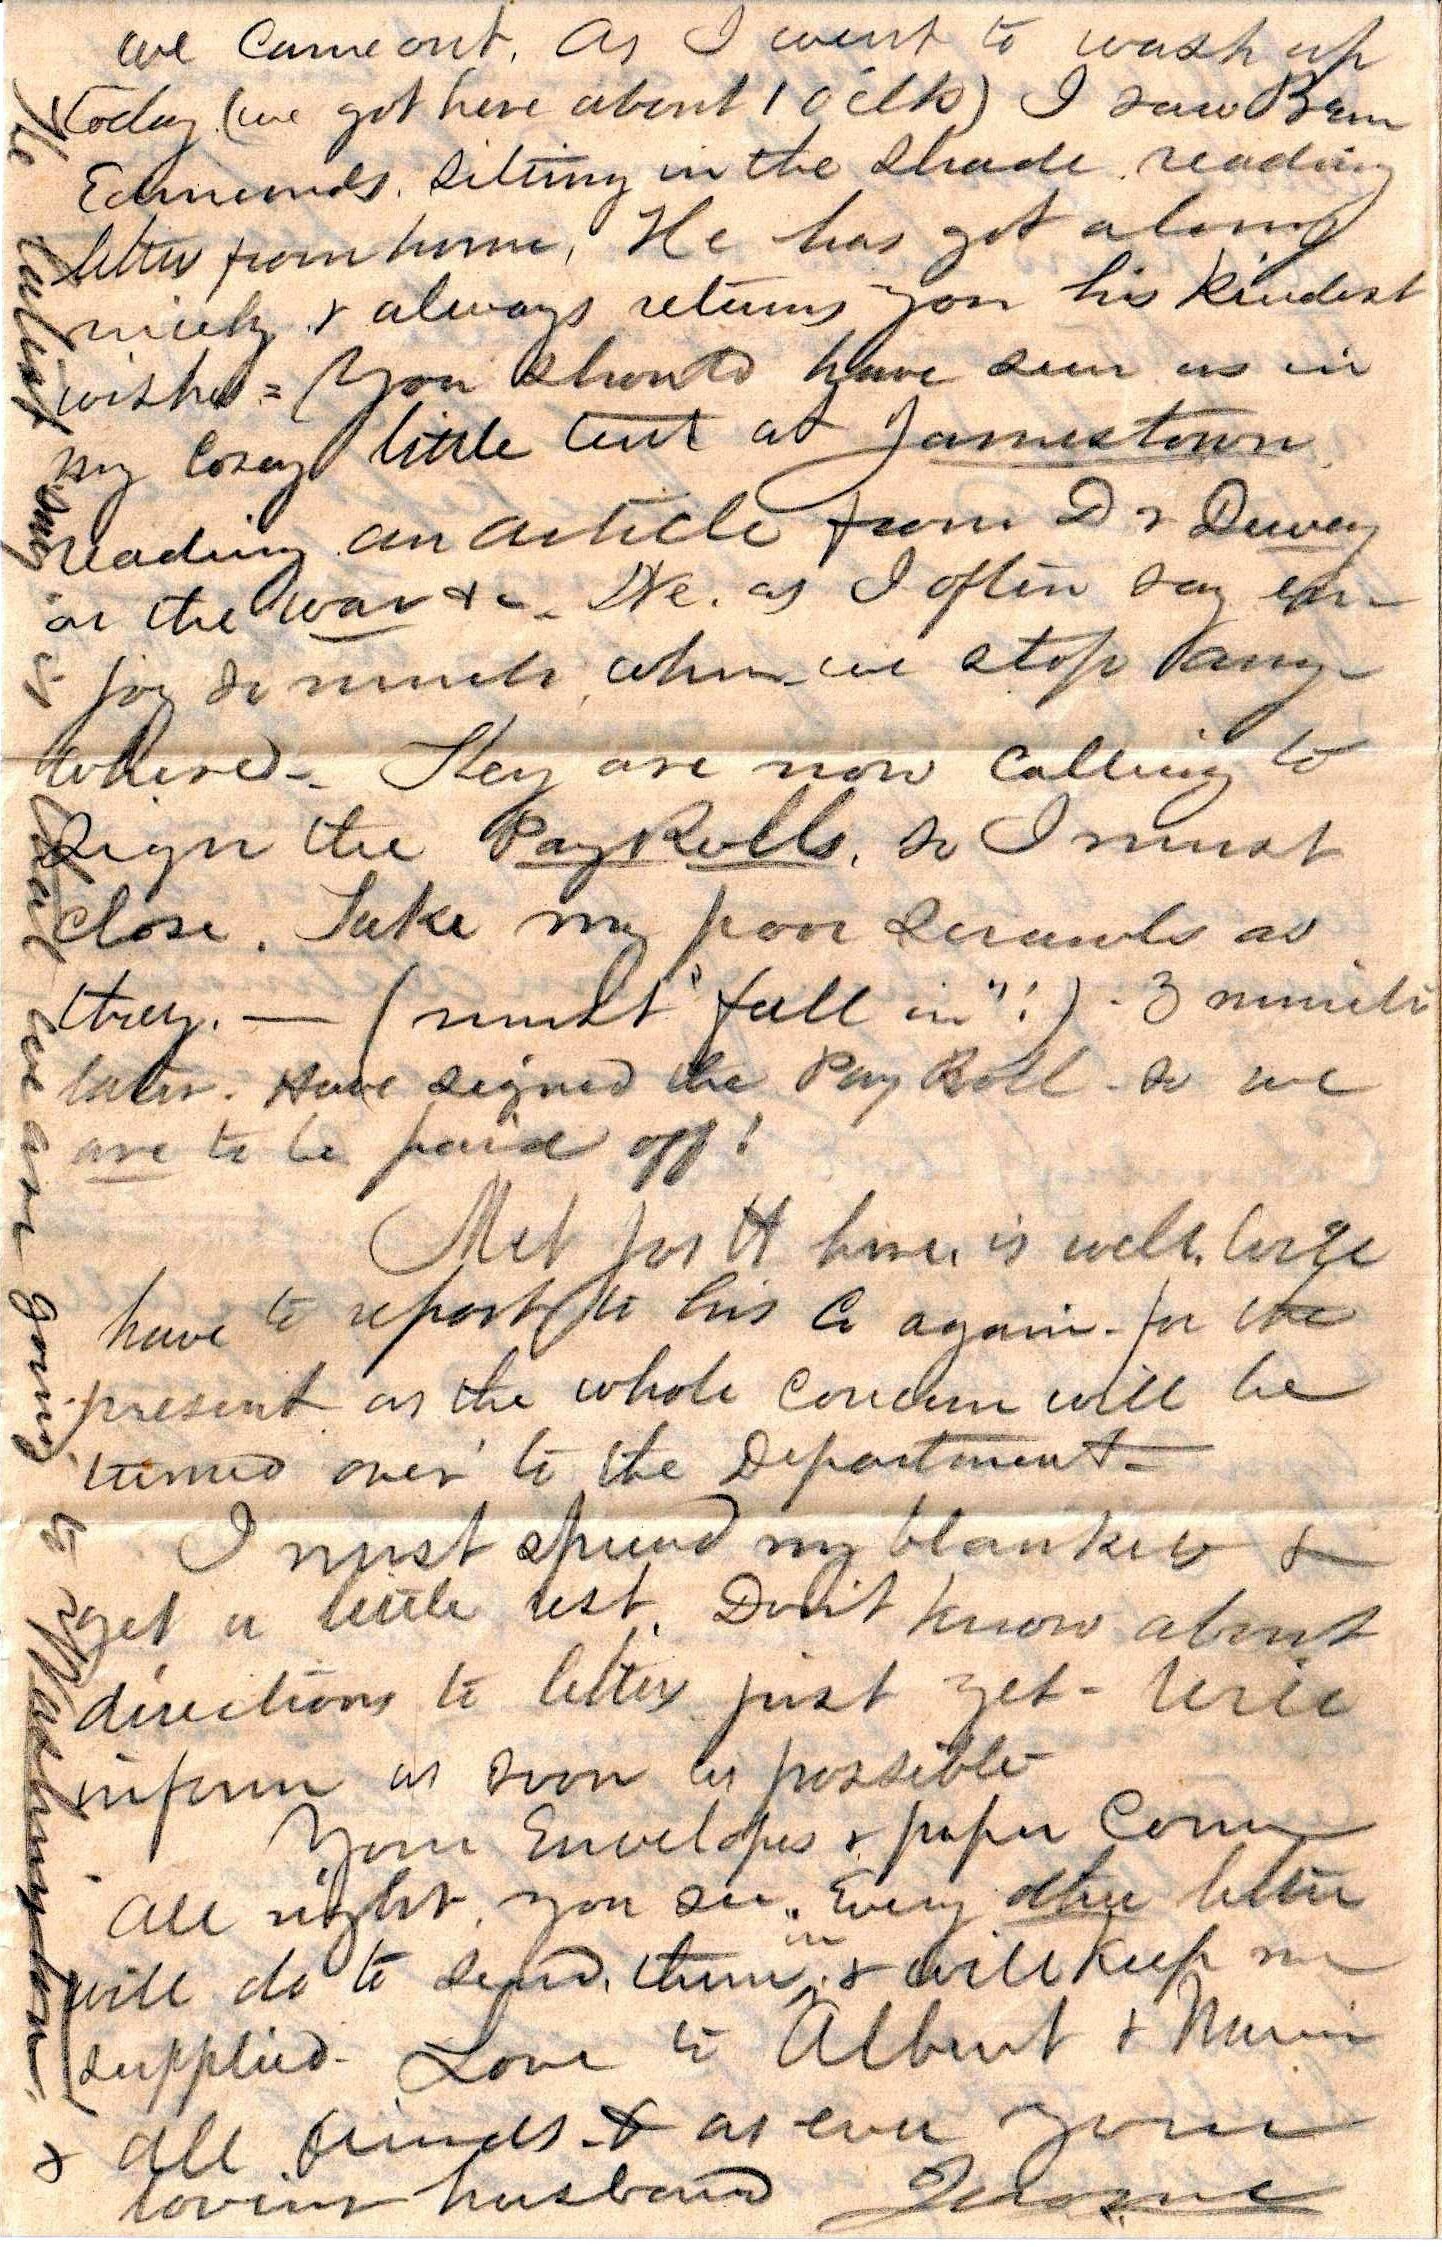 we came out. As I went to wash up
today (we got here about 1 o'clk) I saw Bem
Edmunds. sitting in the shade. reading
letter from home. He has got along
nicely & always returns you his kindest
wishes = (You should have seen us in
my cosey little tent at Jamestown
reading an article from Dr Dewey
on the war &c - We. as I often say en-
joy so much, when we stop any-
where) - They are now calling to
sign the Pay Rolls. so I must
close. Take my poor scrawls as
they. — (must "fall in"!) - 3 minits
later. Have signed the Pay Roll - so we
are to be paid off!
Met here. is well.
have to report to his Co again - for the
present as the whole concern will be
turned over to the Department -
I must spread my blankets &
get a little rest. Don't know about
directions to letter just yet - Will
inform as soon as possible
Your Envelopes & paper Come
all right, you see. "Every other letter
will do to send. them in" & will keep me
supplied - Love to Albert &
all friends & as ever your
loving husband Jerome
The latest is that we are going to "Washington" &